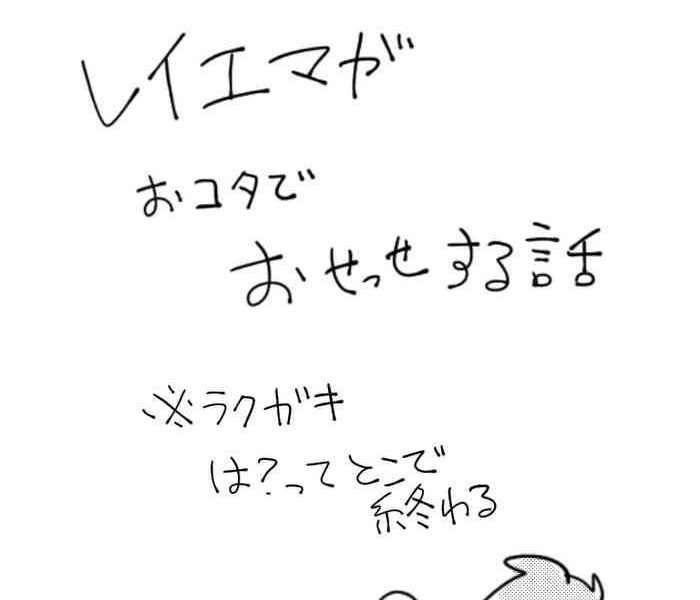 レイエマが
おコタで
おせっせする話
※ラクガキ
は?ってとこで
終わる